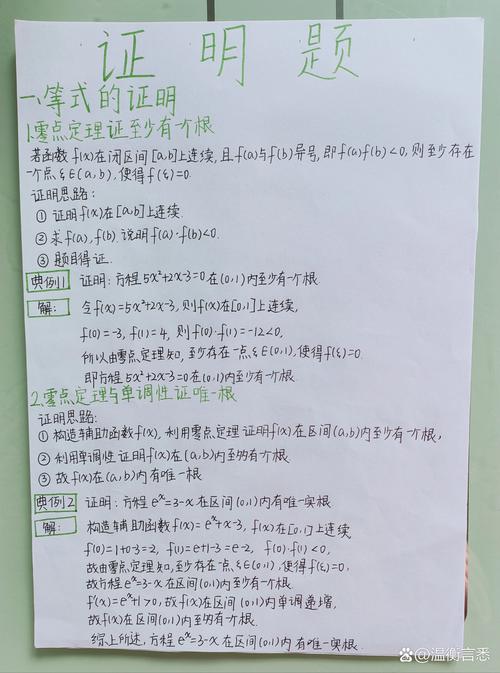 证明题
一、等式的证明
1.零点定理证至少有一个根
若函数f(x)在闭区间[a,b]上连续,且f(a)与f(b)异号,即f(a)f(b)<0,则至少存在
一个点ξ∈(a,b),使得f(ξ)=0.
证明思路:
① 证明f(x)在[a,b]上连续.
② 求f(a),f(b).说明f(a)·f(b)<0.
③ 题目得证.
典例1 证明:方程5x²+2x-3=0在(0,1)内至少有一个根.
解: 令f(x)=5x²+2x-3,则f(x)在[0,1]上连续,
f(0)=-3, f(1)=4, 则f(0)·f(1)=-12<0,
所以由零点定理知,至少存在一点ξ∈(0,1),使得f(ξ)=0.
即方程5x²+2x-3=0在(0,1)内至少有一个根.
2.零点定理与单调性证唯一根
证明思路:
① 构造辅助函数f(x),利用零点定理证明f(x)在区间(a,b)内至少有一个根,
② 利用单调性证明f(x)在(a,b)内至多有一个根
③ 故f(x)在(a,b)内有唯一根
典例2 证明:方程eˣ=3-x在区间(0,1)内有唯一实根
解: 构造辅助函数f(x)=eˣ+x-3, f(x)在[0,1]上连续
f(0)=1+0-3=-2, f(1)=e+1-3=e-2, f(0)·f(1)<0,
故由零点定理知,至少存在一点ξ∈(0,1),使得f(ξ)=0,
故方程eˣ=3-x在区间(0,1)内至少有一个根.
f'(x)=eˣ+1>0,故f(x)在区间(0,1)内单调递增,
故f(x)在区间(0,1)内至多有一个根.
综上所述,方程eˣ=3-x在区间(0,1)内有唯一实根.
@温衡言悉